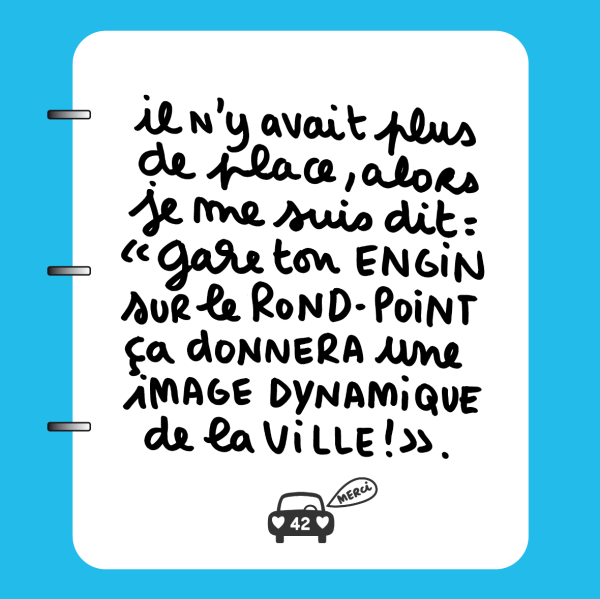 il N'y avait plus
de place, alors
je me suis dit :
« gare ton ENGiN
sur le ROND-POiNT
ça dONNERA une
iMAGE DYNAMiQUE
de la ViLLE ! ».
MERCi
42